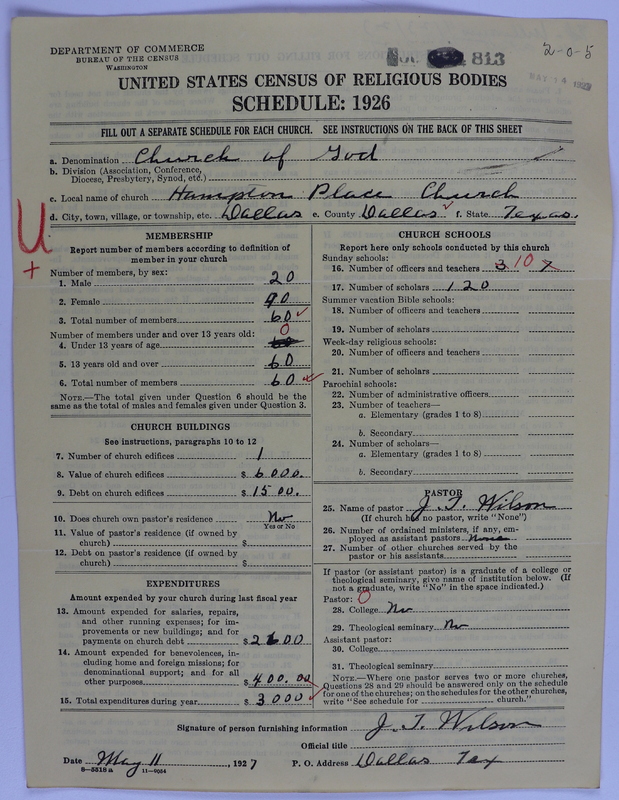 DEPARTMENT OF COMMERCE
BUREAU OF THE CENSUS
WASHINGTON
813
2-0-5
MAY 14 1927
UNITED STATES CENSUS OF RELIGIOUS BODIES
SCHEDULE: 1926
FILL OUT A SEPARATE SCHEDULE FOR EACH CHURCH. SEE INSTRUCTIONS ON THE BACK OF THIS SHEET
a. Denomination Church of God
b. Division (Association, Conference, Diocese, Presbytery, Synod, etc.)
c. Local name of church Hampton Place Church
d. City, town, village, or township, etc. Dallas e. County Dallas f. State Texas.
U
+
MEMBERSHIP
Report number of members according to definition of member in your church
Number of members, by sex:
1. Male 20
2. Female 40
3. Total number of members 60
Number of members under and over 13 years old:
4. Under 13 years of age 0
5. 13 years old and over 60
6. Total number of members 60
NOTE.—The total given under Question 6 should be the same as the total of males and females given under Question 3.
CHURCH BUILDINGS
See instructions, paragraphs 10 to 12
7. Number of church edifices 1
8. Value of church edifices $6000.
9. Debt on church edifices $1500.
10. Does church own pastor's residence No
Yes or No
11. Value of pastor's residence (if owned by church) $
12. Debt on pastor's residence (if owned by church) $
EXPENDITURES
Amount expended by your church during last fiscal year
13. Amount expended for salaries, repairs, and other running expenses; for improvements or new buildings; and for payments on church debt $2600
14. Amount expended for benevolences, including home and foreign missions; for denominational support; and for all other purposes $400.00
15. Total expenditures during year $3000
CHURCH SCHOOLS
Report here only schools conducted by this church
Sunday schools:
16. Number of officers and teachers 3 10 7
17. Number of scholars 120
Summer vacation Bible schools:
18. Number of officers and teachers
19. Number of scholars
Week-day religious schools:
20. Number of officers and teachers
21. Number of scholars
Parochial schools:
22. Number of administrative officers
23. Number of teachers—
a. Elementary (grades 1 to 8)
b. Secondary
24. Number of scholars—
a. Elementary (grades 1 to 8)
b. Secondary
PASTOR
25. Name of pastor J. T. Wilson
(If church has no pastor, write "None")
26. Number of ordained ministers, if any, employed as assistant pastors None
27. Number of other churches served by the pastor or his assistants
If pastor (or assistant pastor) is a graduate of a college or theological seminary, give name of institution below. (If not a graduate, write "No" in the space indicated.)
Pastor: 0
28. College No
29. Theological seminary No
Assistant pastor:
30. College
31. Theological seminary
NOTE.—Where one pastor serves two or more churches, Questions 28 and 29 should be answered only on the schedule for one of the churches; on the schedules for the other churches, write "See schedule for church."
Signature of person furnishing information J. T. Wilson
Official title
Date May 11, 1927 P. O. Address Dallas Tex
8-5518a 11-9054